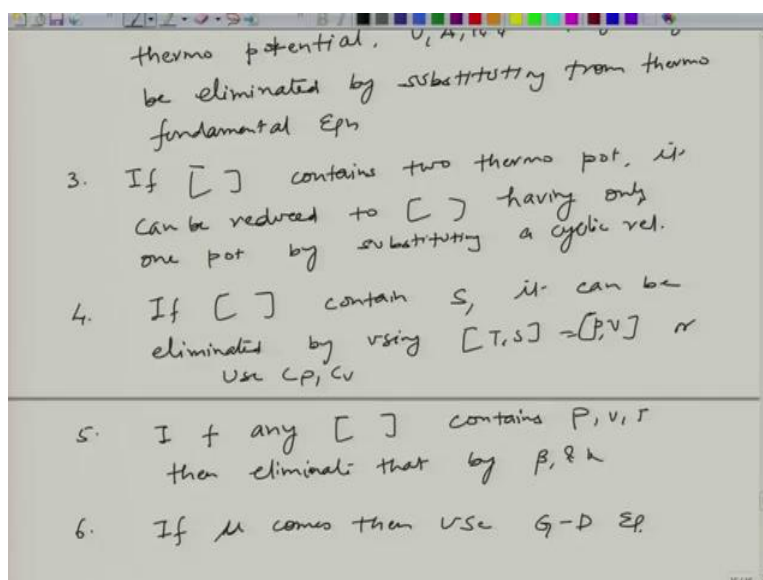 thermo potential. U, A,
be eliminated by substituting from thermo
fundamental Eqn
3. If [ ] contains two thermo pot, it
can be reduced to [ ] having only
one pot by substituting a cyclic rel.
4. If [ ] contain S, it can be
eliminated by using [T,S] = [P,V] or
Use Cp, Cv
5. If any [ ] contains P, V, T
then eliminate that by β, & k
6. If μ comes then use G-D Eq.